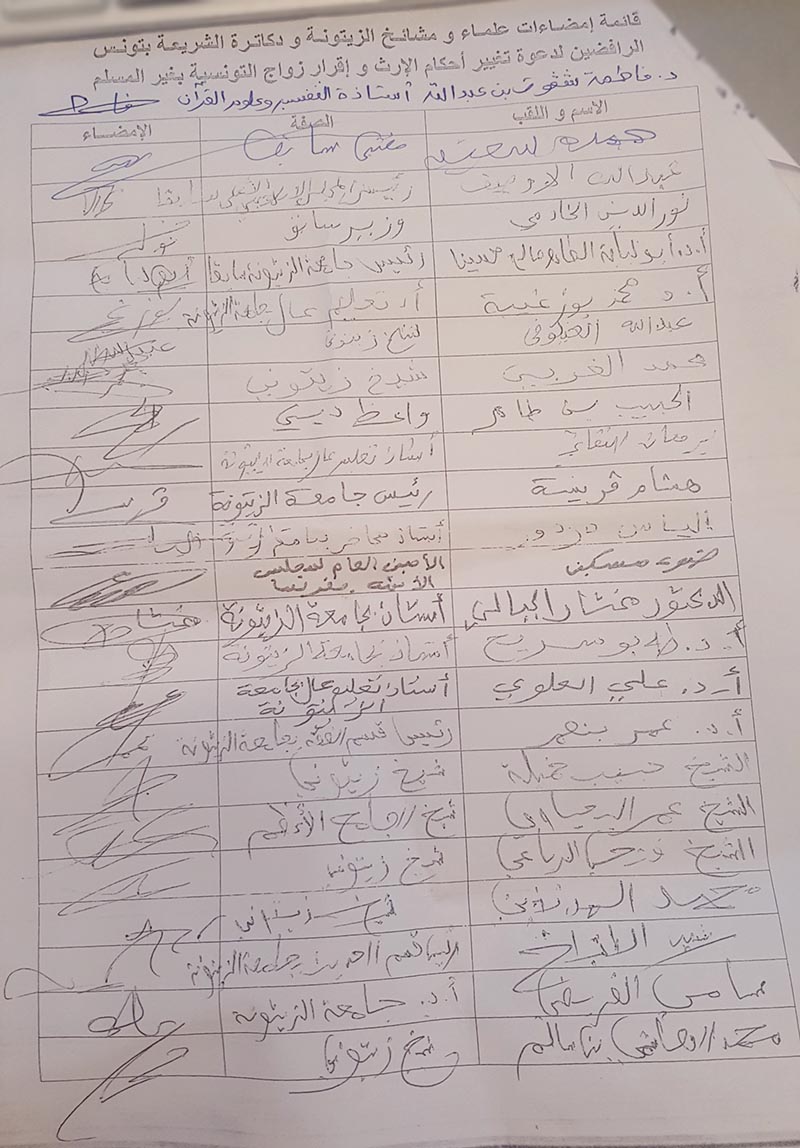 قائمة إمضاءات علماء و مشائخ الزيتونة و دكاترة الشريعة بتونس
الرافضين لدعوة تغيير أحكام الإرث و إقرار زواج التونسية بغير المسلم
د. فاطمة شقوت بن عبدالله أستاذة التفسير وعلوم القرآن
الاسم و اللقب الصفة الإمضاء
حمدة سعيد مفتي سابق
عبدالله الاوصيف رئيس المجلس الإسلامي الأعلى سابقا
نور الدين الخادمي وزير سابق
أ.د. أبو لبابة الطاهر صالح حسين رئيس جامعة الزيتونة سابقا
أ.د محمد بوزغيبة أ. تعليم عال جامعة الزيتونة
عبدالله شيخ زيتوني
محمد الغربي شيخ زيتوني
الحبيب بن طاهر واعظ ديني
أستاذ تعليم عال جامعة الزيتونة
هشام قريسة رئيس جامعة الزيتونة
إلياس دردور أستاذ محاضر
ضوء مسكين الأمين العام لمجلس الأئمة بفرنسا
الدكتور مختار الجبالي أستاذ بجامعة الزيتونة
أ.د. طه بوسريح أستاذ بجامعة الزيتونة
أ.د. علي العلوي أستاذ تعليم عال بجامعة الزيتونة
أ.د. عمر بنعمر رئيس قسم بجامعة الزيتونة
الشيخ حبيب شيخ زيتوني
الشيخ عمر اليحياوي شيخ الجامع الأعظم
الشيخ شيخ زيتوني
محمد شيخ زيتوني
منير الطبراخ جامعة الزيتونة
سامي الفريضي أ.د. جامعة الزيتونة
محمد بن سالم شيخ زيتوني